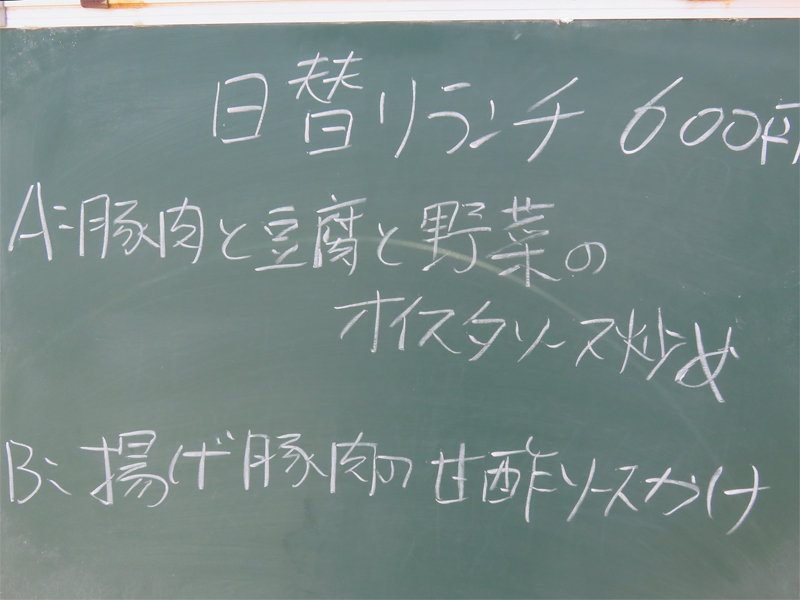 日替ランチ 600円
A:豚肉と豆腐と野菜の
オイスタソース炒め
B:揚げ豚肉の甘酢ソースかけ